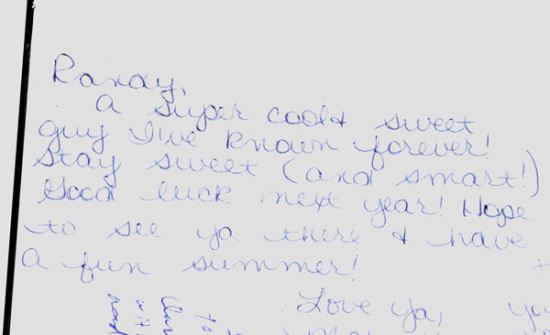 Randy,
A super cool & sweet
guy I've known forever!
Stay sweet (and smart!)
Good luck next year! Hope
to see ya there & have
a fun summer!
Love ya,